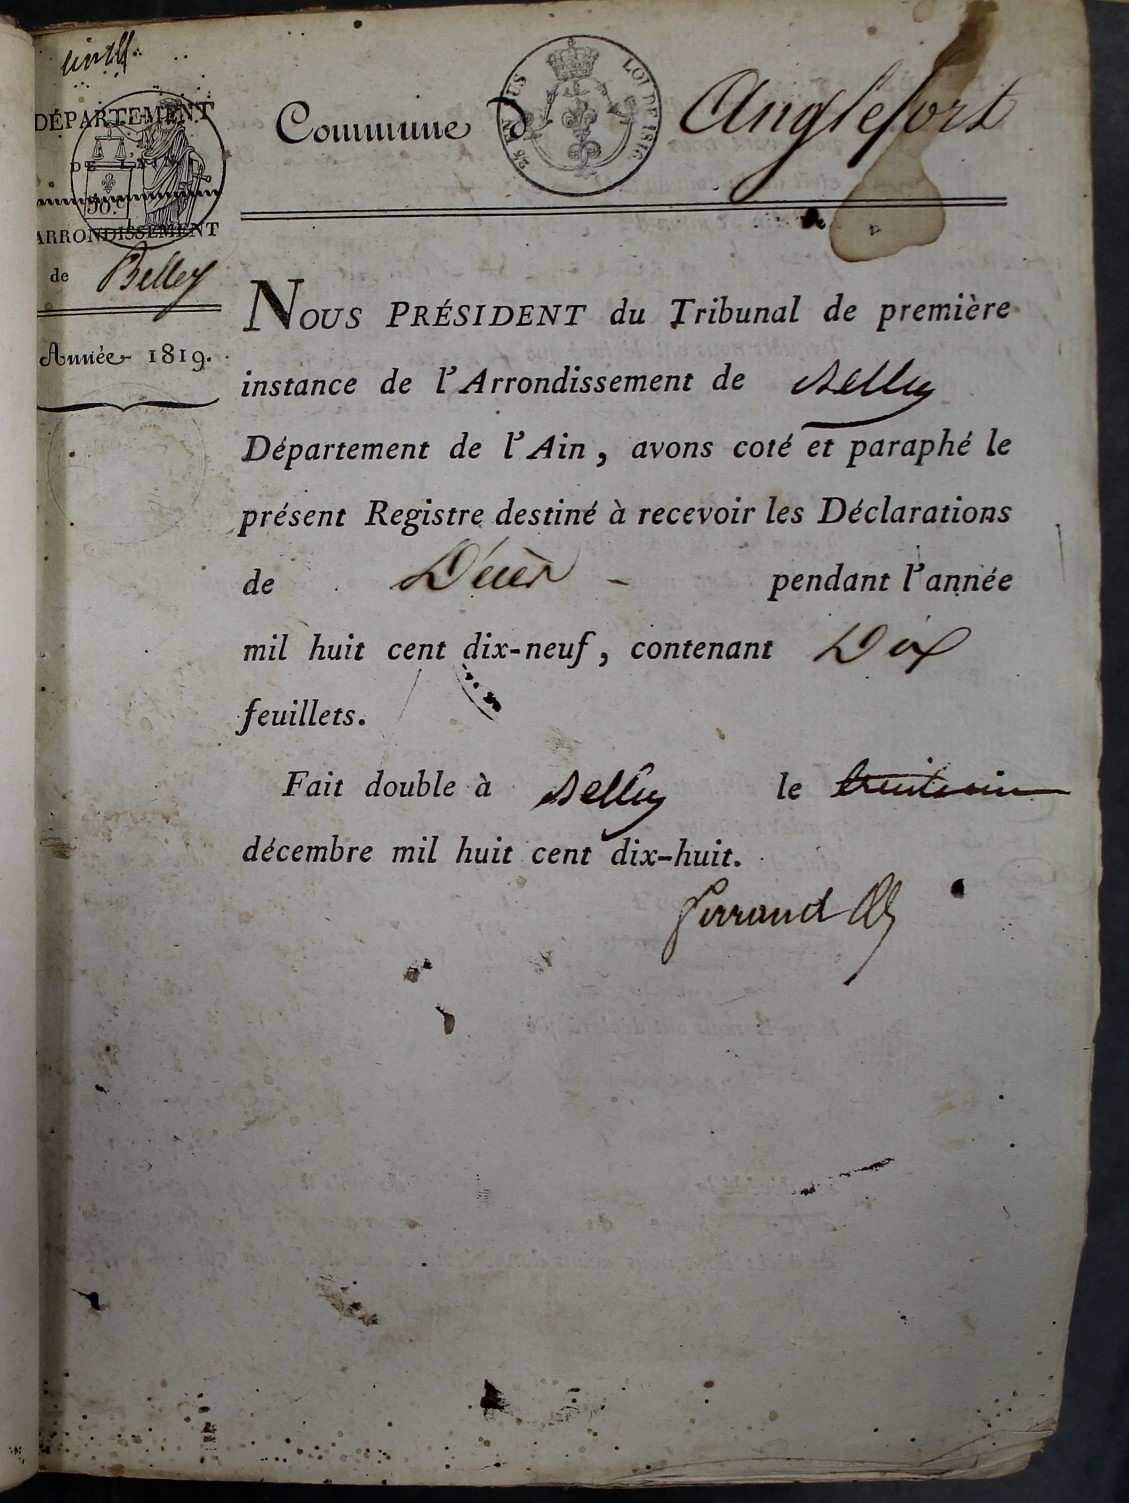 DÉPARTEMENT
DE L'AIN
50.
ARRONDISSEMENT
de Belley
Année 1819.
Commune d' Anglefort
LOI DE 1816
NOUS PRÉSIDENT du Tribunal de première
instance de l'Arrondissement de Belley
Département de l'Ain, avons coté et paraphé le
présent Registre destiné à recevoir les Déclarations
de Décès pendant l'année
mil huit cent dix-neuf, contenant Dix
feuillets.
Fait double à Belley le
décembre mil huit cent dix-huit.